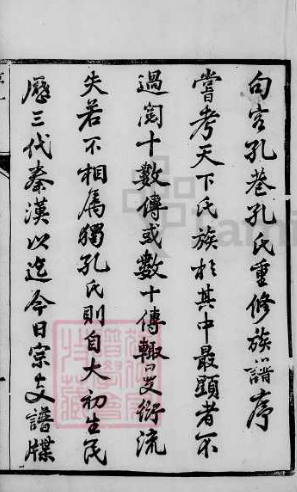 句容孔巷孔氏重修族譜序
嘗考天下氏族於其中最顯者不
過閱十數傳或數十傳輒衍流
失若不相属獨孔氏則自大初生民
歷三代秦漢以迄今日宗支譜牒